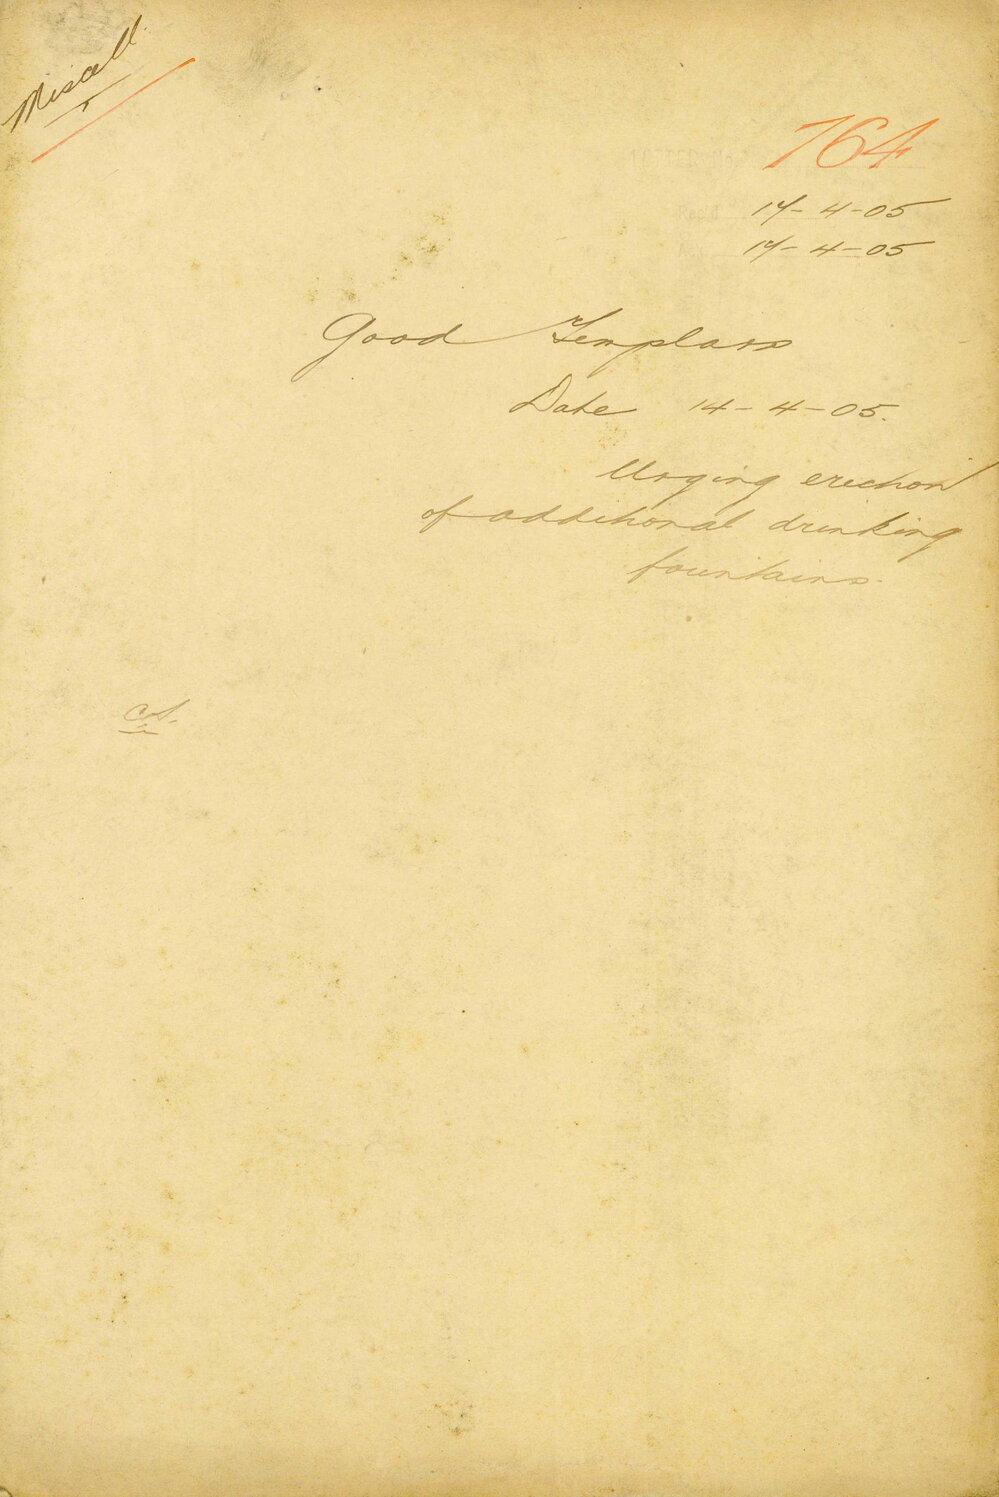 Miscell.
764
Rec'd 17-4-05
17-4-05
Good Templars
Date 14-4-05.
Urging erection
of additional drinking
fountains.